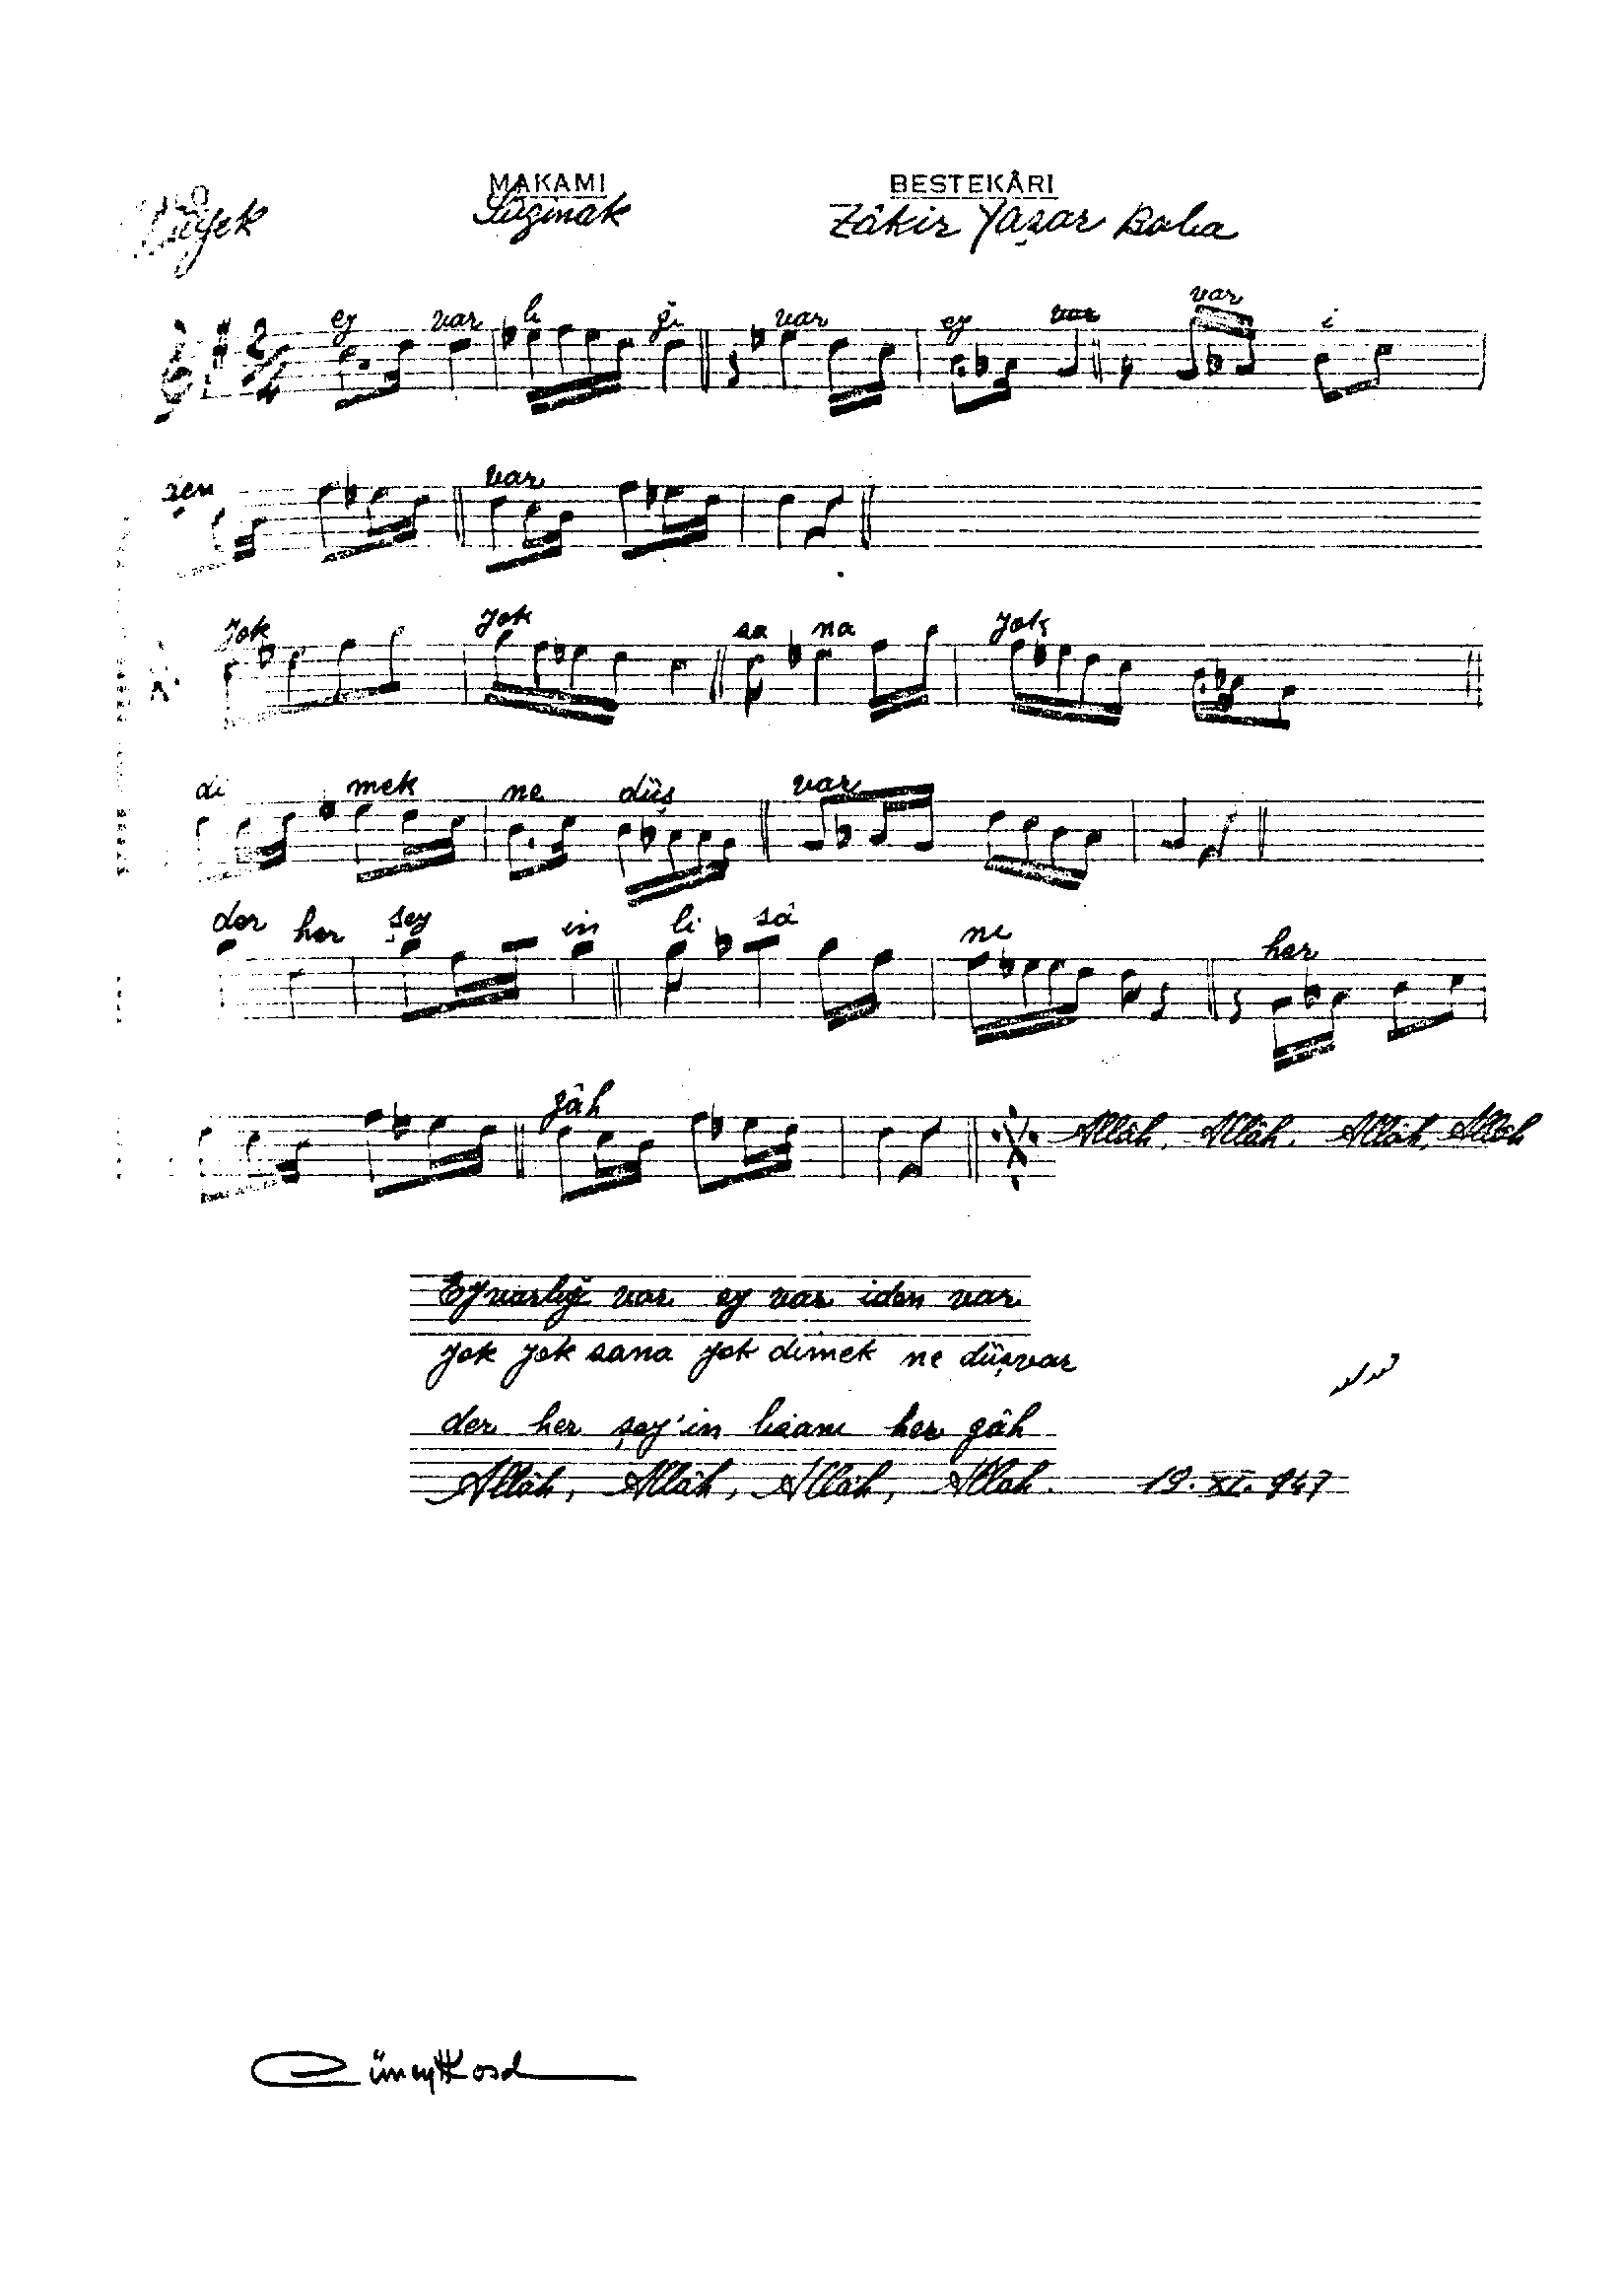 MAKAMI BESTEKÂRI
Sûzinak Zâkir Yaşar Baba
2/4
ey var lı ğı var ey var var i
den var
yok yok sa na yok
di mek ne düş var
der her şey in li sâ ni her
gâh Allâh, Allâh, Allâh, Allâh
Ey varlığı var ey var iden var
yok yok sana yok dimek ne düşvar
der her şey'in lisanı her gâh
Allâh, Allâh, Allâh, Allah. 19. XI. 947